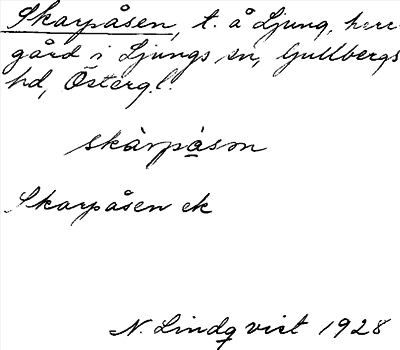 Skarpåsen, t. å Ljung, herr-
gård i Ljungs sn, Gullbergs
hd, Östergl.
skàrpåson
Skarpåsen ek
N. Lindqvist 1928